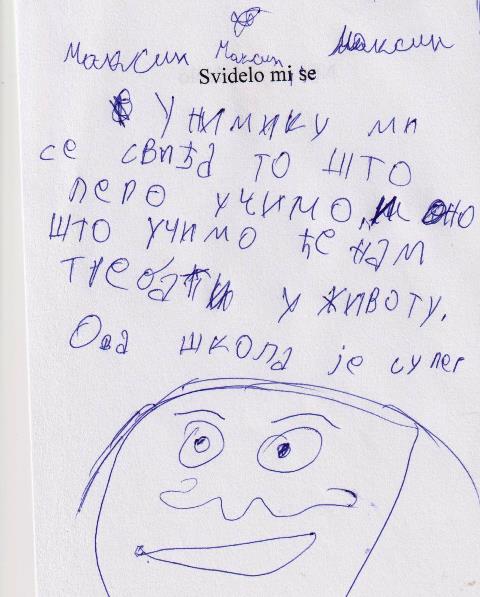 Максим Максим Максим
Svidelo mi se
У НИМИКУ МИ
СЕ СВИЂА ТО ШТО
ЛЕПО УЧИМО, И ОНО
ШТО УЧИМО ЋЕ НАМ
ТРЕБАТИ У ЖИВОТУ.
Ова ШКОЛА је супег